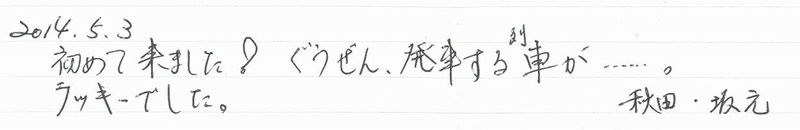 2014.5.3
初めて来ました！ ぐうぜん、発車する列車が……。
ラッキーでした。 秋田・坂元